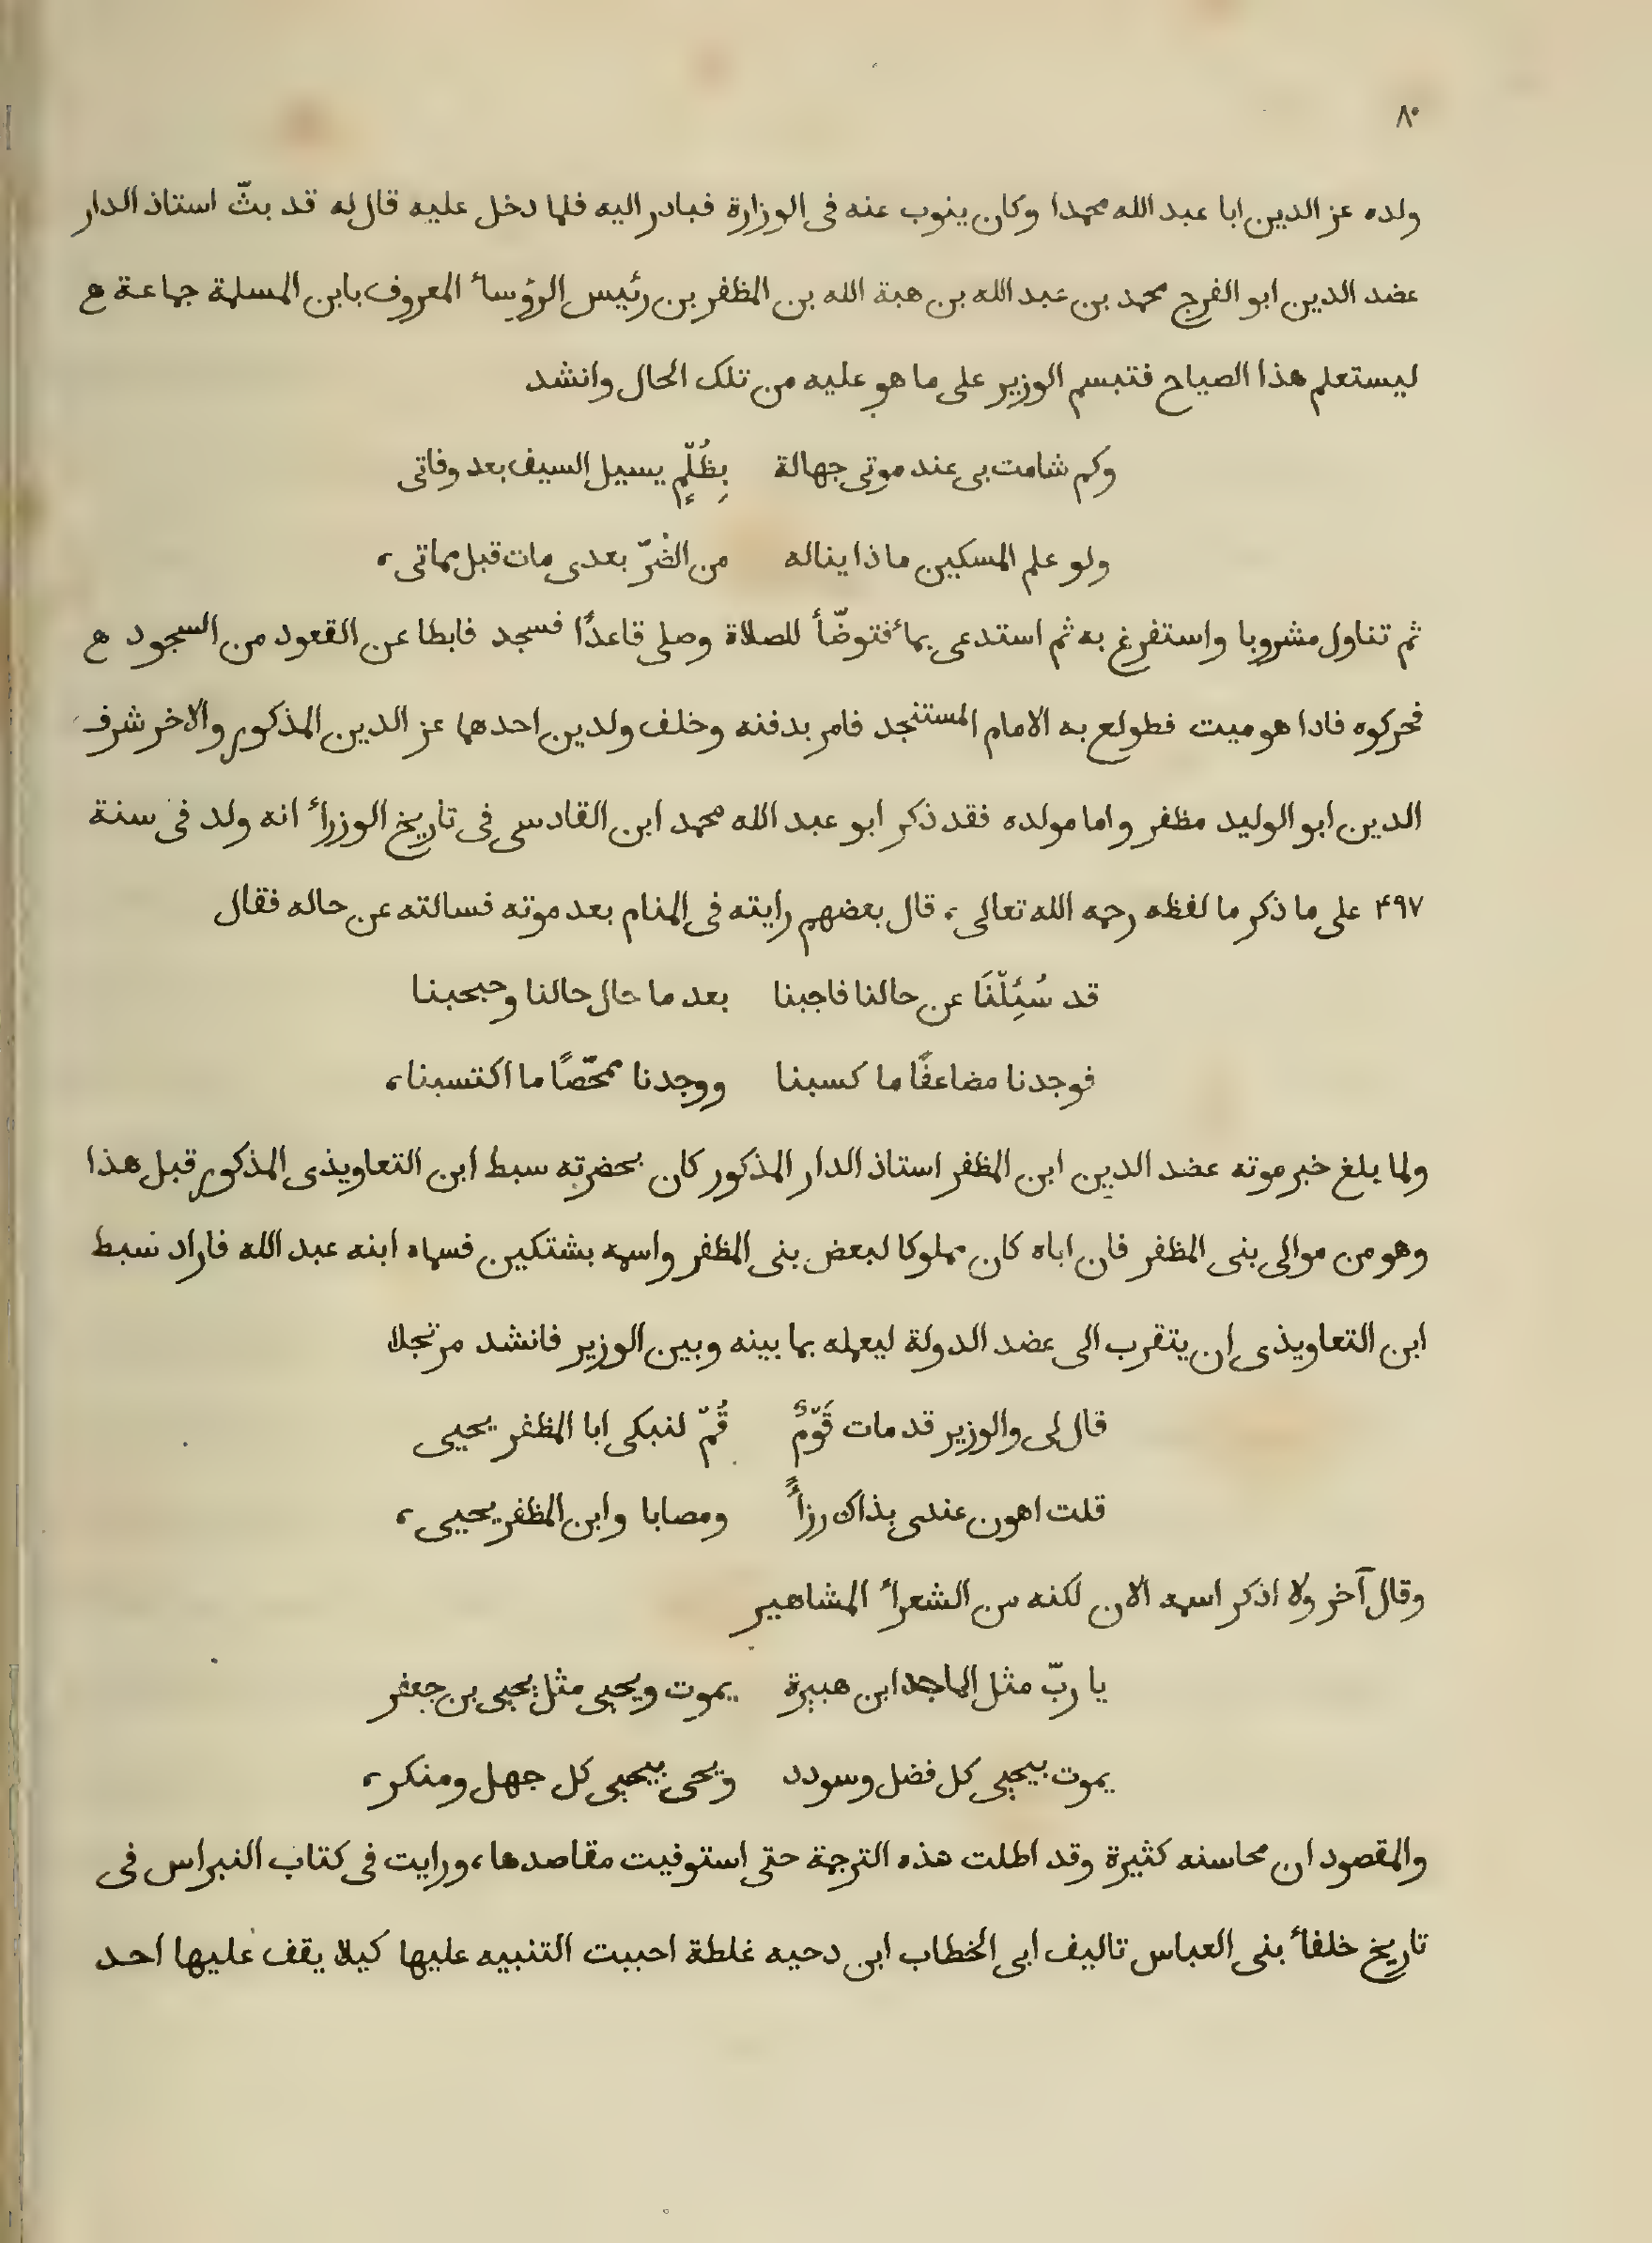 ٨٠
ولده عز الدين ابا عبد الله محمدا وكان ينوب عنه فى الوزارة فبادر اليه فلما دخل عليه قال له قد بثّ استاذ الدار
عضد الدين ابو الفرج محمد بن عبد الله بن هبة الله بن المظفر بن رئيس الرؤسأ المعروف بابن المسلمة جماعة ه
ليستعلم هذا الصياح فتبسم الوزير على ما هو عليه من تلك الحال وانشد
وكم شامت بى عند موتى جهالة بِظُلّمٍ يسيل السيف بعد وفاتى
ولو علم المسكين ماذا يناله من الضُرّ بعدى مات قبل مماتى،
ثم تناول مشروبا واستفرغ به ثم استدعى بمأ فتوضّأ للصلاة وصلى قاعدًا فسجد فابطا عن القعود من السجود ه
فحركوه فاذا هو ميت فطولع به الامام المستنجد فامر بدفنه وخلف ولدين احدهما عز الدين المذكور والاخر شرف
الدين ابو الوليد مظفر واما مولده فقد ذكر ابو عبد الله محمد ابن القادسى فى تاريخ الوزرأ انه ولد فى سنة
۴۹۷ على ما ذكر ما لفظه رحمه الله تعالى، قال بعضهم رايته فى المنام بعد موته فسالته عن حاله فقال
قد سُئِلّنَا عن حالنا فاجبنا بعد ما حال حالنا وحجبنا
فوجدنا مضاعفًا ما كسبنا ووجدنا ممحّصًا ما اكتسبنا،
ولما بلغ خبر موته عضد الدين ابن المظفر استاذ الدار المذكور كان بحضرته سبط ابن التعاويذى المذكور قبل هذا
وهو من موالى بنى المظفر فان اباه كان مملوكا لبعض بنى المظفر واسمه بشتكين فسماه ابنه عبد الله فاراد سبط
ابن التعاويذى ان يتقرب الى عضد الدولة ليعلمه بما بينه وبين الوزير فانشد مرتجلا
قال لى والوزير قد مات قَوّمٌ قُمّ لنبكى ابا المظفر يحيى
قلت اهون عندى بذاك رزأً ومصابا وابن المظفر يحيى،
وقال آخر ولا اذكر اسمه الان لكنه من الشعرأ المشاهير
يا ربّ مثل الماجد ابن هبيرة يموت ويحيى مثل يحيى بن جعفر
يموت بيحيى كل فضل وسودد ويحى بيحيى كل جهل ومنكر،
والمقصود ان محاسنه كثيرة وقد اطلت هذه الترجمة حتى استوفيت مقاصدها، ورايت فى كتاب النبراس فى
تاريخ خلفأ بنى العباس تاليف ابى الخطاب ابن دحيه غلطة احببت التنبيه عليها كيلا يقف عليها احد